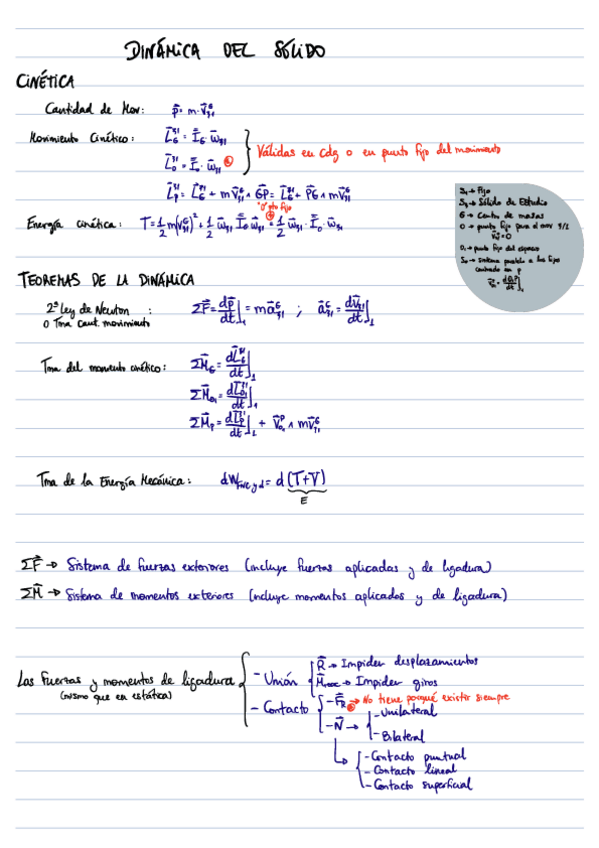 DINÁMICA DEL SÓLIDO
CINÉTICA
Cantidad de Mov: p⃗ = m·v⃗²¹ᴳ
Momento Cinético: L⃗_G²¹ = I̿_G · ω⃗₂₁
L⃗_O²¹ = I̿_O · ω⃗₂₁
Válidas en Cdg o en punto fijo del movimiento
L⃗_P²¹ = L⃗_G²¹ + m v⃗₂₁ᴳ ∧ GP⃗ = L⃗_G²¹ + PG⃗ ∧ m v⃗₂₁ᴳ
"O" pto fijo
Energía cinética: T = 1/2 m(v⃗₂₁ᴳ)² + 1/2 ω⃗₂₁ I̿_G ω⃗₂₁ = 1/2 ω⃗₂₁ · I̿_O · ω⃗₂₁
S₁ → Fijo
S₂ → Sólido de Estudio
G → Centro de masas
O → punto fijo para el mov 2/1
O₁ → punto fijo del espacio
centrado en P
TEOREMAS DE LA DINÁMICA
2ª Ley de Newton :
O Tma Cant. movimiento
ΣF⃗ = dp⃗/dt]₁ = m a⃗₂₁ᴳ ; a⃗₂₁ᴳ = dv⃗₂₁ᴳ/dt]₁
Tma del momento cinético: ΣM⃗_G = dL⃗_G²¹/dt]₁
ΣM⃗_O₁ = dL⃗_O₁²¹/dt]₁
ΣM⃗_P = dL⃗_P²¹/dt]₁ + v⃗₀₁ᴾ ∧ m v⃗₂₁ᴳ
Tma de la Energía Mecánica: dW_FNC y d = d (T+V)
E
ΣF⃗ → Sistema de fuerzas exteriores (incluye fuerzas aplicadas y de ligadura)
ΣM⃗ → Sistema de momentos exteriores (incluye momentos aplicados y de ligadura)
Las fuerzas y momentos de ligadura
(mismo que en estática)
- Unión
R⃗ → Impiden desplazamientos
→ Impiden giros
- Contacto
- F⃗_R → No tiene porqué existir siempre
- N⃗ → - Unilateral
- Bilateral
- Contacto puntual
- Contacto lineal
- Contacto superficial